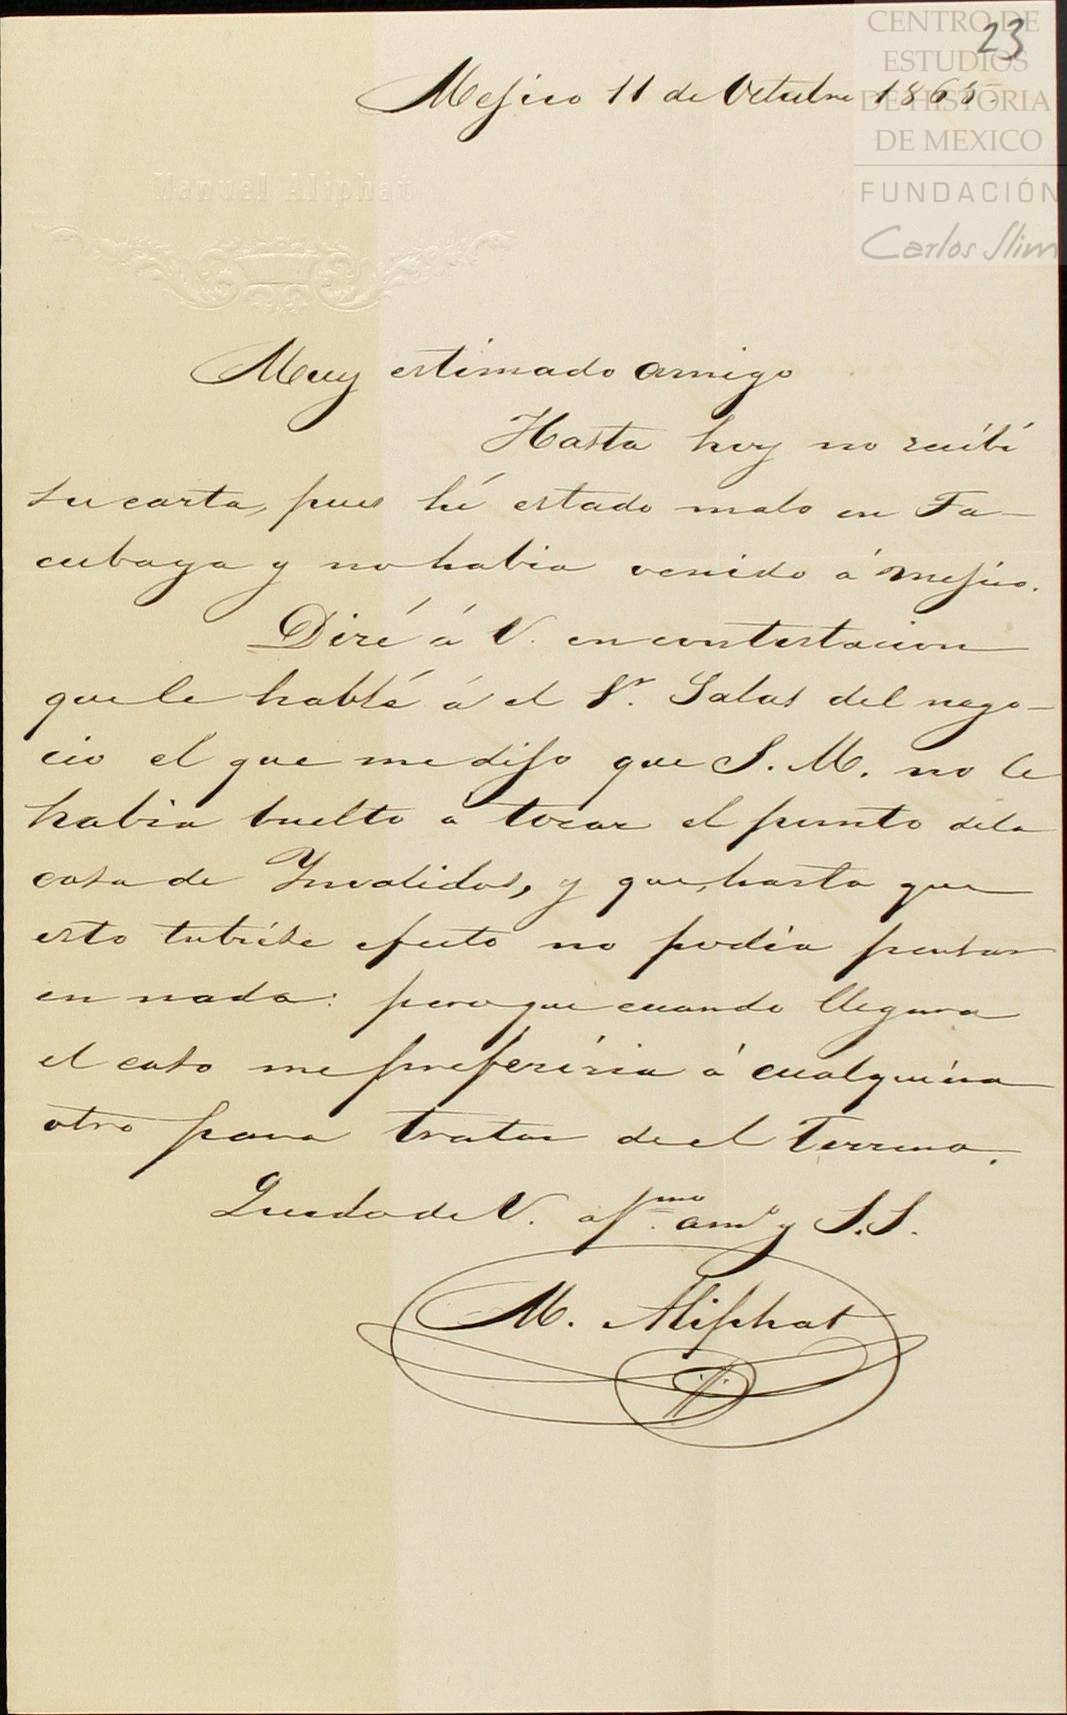 23
CENTRO DE
ESTUDIOS
DE HISTORIA
DE MEXICO
FUNDACIÓN
Carlos Slim
Mejico 11 de Octubre 1865
Manuel Aliphat
Muy estimado amigo
Hasta hoy no recibi
su carta, pues hé estado malo en Ta-
cubaya y no habia venido á Mejico.
Diré á V. en contestacion
que le hablé á el Sr. Salas del nego-
cio el que me dijo que S. M. no le
habia buelto a tocar el punto dela
casa de Ynvalidos, y que, hasta que
esto tubiese efecto no podia pensar
en nada: pero que cuando llegara
el caso me prefeririа á cualquiera
otro para tratar de el Terreno.
Quedo de V. afmo. amo y S.S.
M. Aliphat